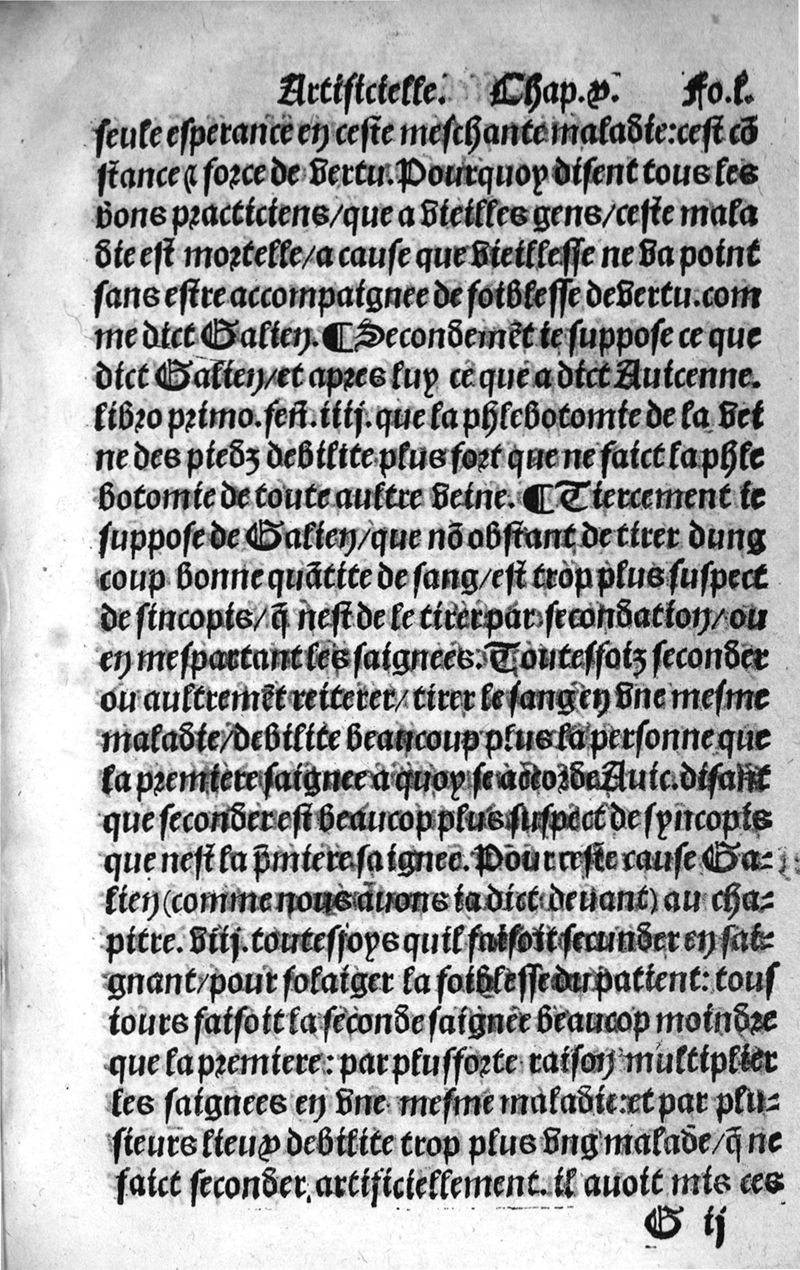 Artificielle. Chap.x. Fo.l.
seule esperance en ceste meschante maladie:cest cõ
stance ⁊ force de vertu.Pourquoy disent tous les
bons practiciens/que a vieilles gens/ceste mala
die est mortelle/a cause que vieillesse ne va point
sans estre accompaignee de foiblesse de vertu.com
me dict Galien.¶Secondemẽt ie suppose ce que
dict Galien/et apres luy ce que a dict Auicenne.
libro primo.fen.iiij.que la phlebotomie de la vei
ne des piedz debilite plus fort que ne faict la phle
botomie de toute aultre veine.¶Tiercement ie
suppose de Galien/que nõ obstant de tirer dung
coup bonne quãtite de sang/est trop plus suspect
de sincopis/q̃ nest de le tirer par secondation/ou
en mespartant les saignees.Toutesfoiz seconder
ou aultremẽt reiterer/tirer le sang en vne mesme
maladie/debilite beaucoup plus la personne que
la premiere saignee a quoy se accorde Auic.disant
que seconder est beaucop plus suspect de syncopis
que nest la p̃miere saignee.Pour ceste cause Ga-
lien(comme nous auons ia dict deuant)au cha-
pitre.viij.toutesfoys quil faisoit secunder en sai-
gnant/pour solaiger la foiblesse du patient:tous
iours faisoit la seconde saignee beaucop moindre
que la premiere:par plusforte raison multiplier
les saignees en vne mesme maladie:et par plu-
sieurs lieux debilite trop plus vng malade/q̃ ne
faict seconder artificiellement.il auoit mis ces
G ij